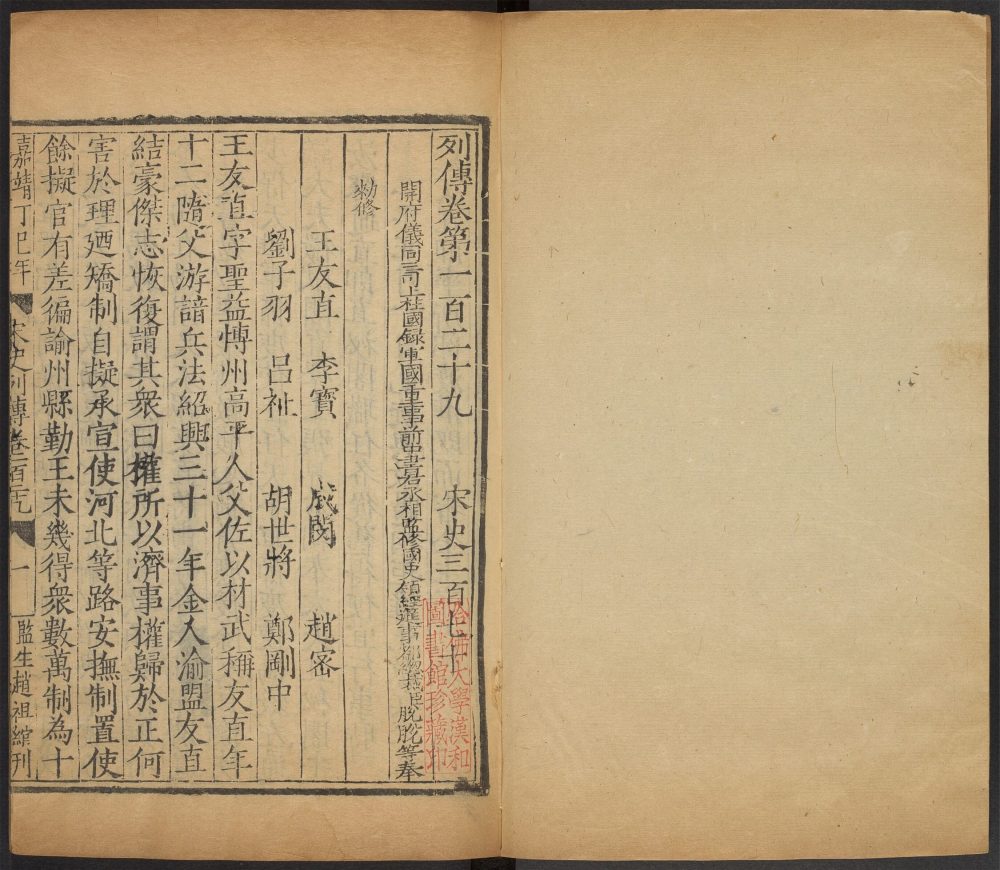 列傳卷第一百二十九 宋史三百七十
開府儀同三司上柱國錄軍國重事前中書右丞相監修國史領經筵事都總裁臣脫脫等奉
勑修
王友直 李寶 成閔 趙密
劉子羽 呂祉 胡世將 鄭剛中
王友直字聖益博州高平人父佐以材武稱友直年
十二隨父游諳兵法紹興三十一年金人渝盟友直
結豪傑志恢復謂其衆曰權所以濟事權歸於正何
害於理廼矯制自擬承宣使河北等路安撫制置使
餘擬官有差徧諭州縣勤王未幾得衆數萬制為十
嘉靖丁巳年 宋史列傳卷一百二十九 一 監生趙祖 刊
哈佛大學漢和
圖書館珍藏印